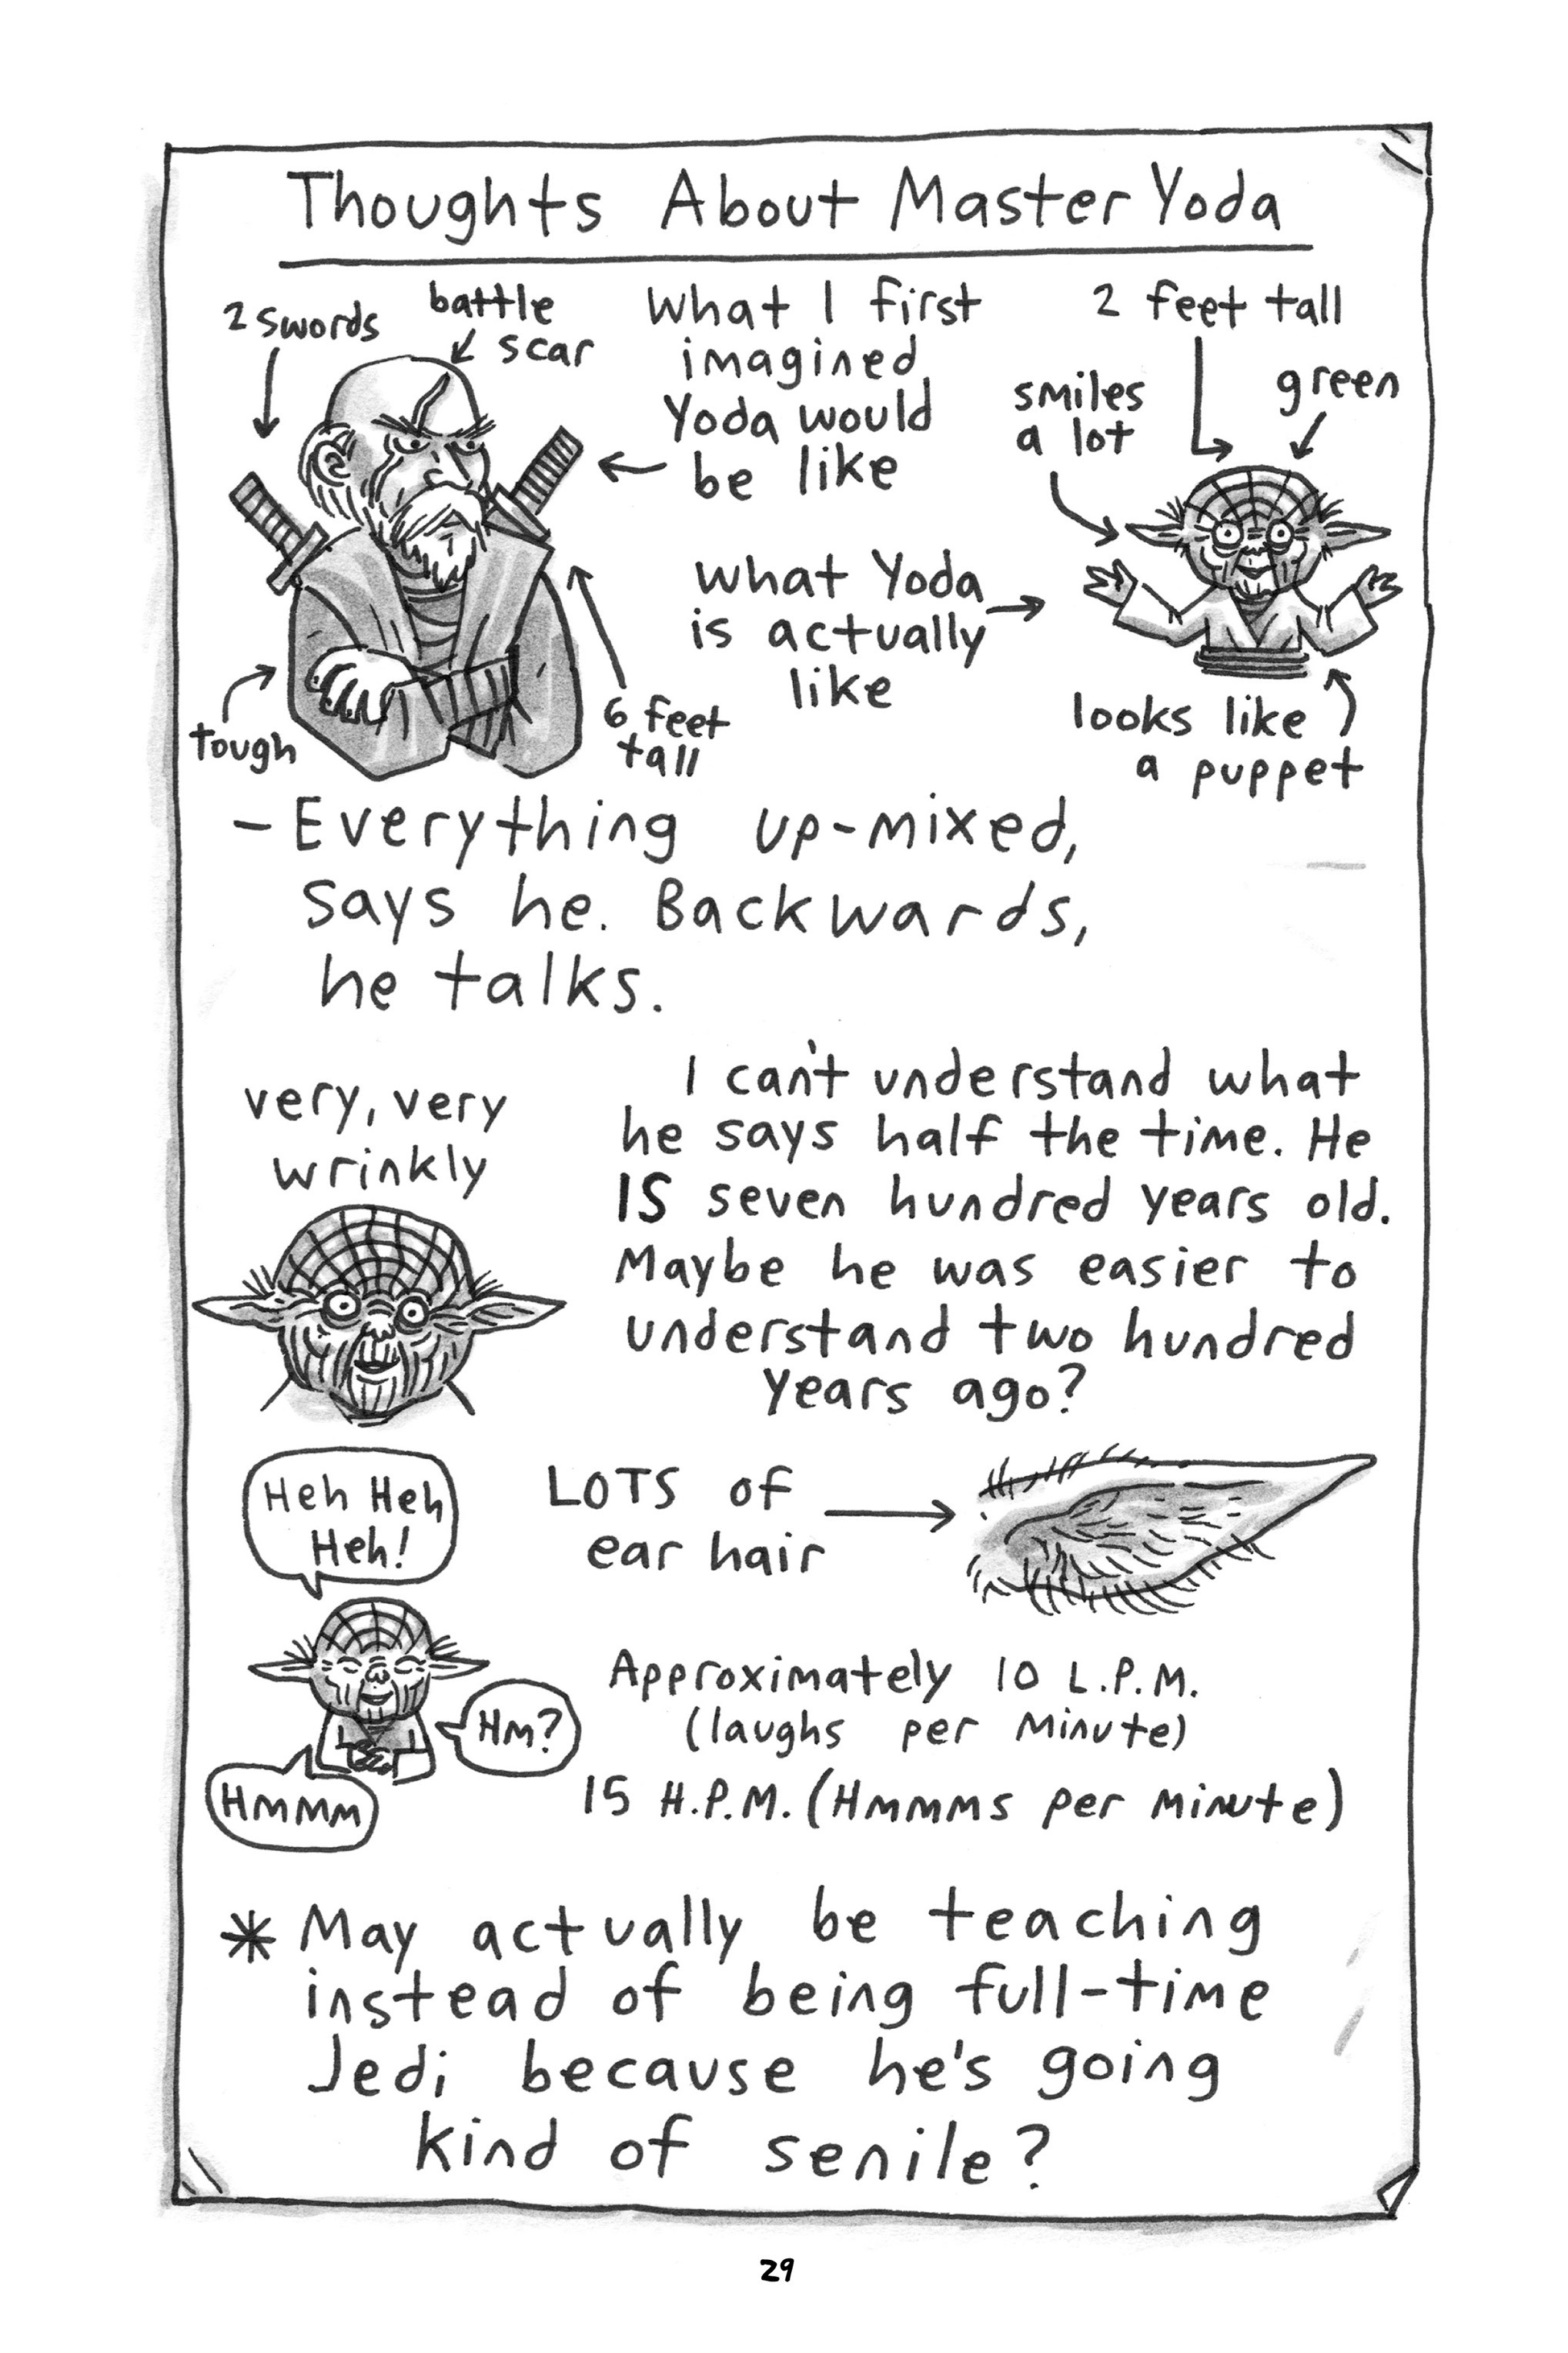 Thoughts About Master Yoda
2 swords
battle
scar
What I first
imagined
Yoda would
be like
2 feet tall
smiles
a lot
green
what Yoda
is actually
like
tough
6 feet
tall
looks like
a puppet
- Everything up-mixed,
says he. Backwards,
he talks.
very, very
wrinkly
I can't understand what
he says half the time. He
IS seven hundred years old.
Maybe he was easier to
understand two hundred
years ago?
Heh Heh
Heh!
LOTS of
ear hair
Hm?
Hmmm
Approximately 10 L.P.M.
(laughs per minute)
15 H.P.M. (Hmmms per minute)
* May actually be teaching
instead of being full-time
Jedi because he's going
kind of senile?
29